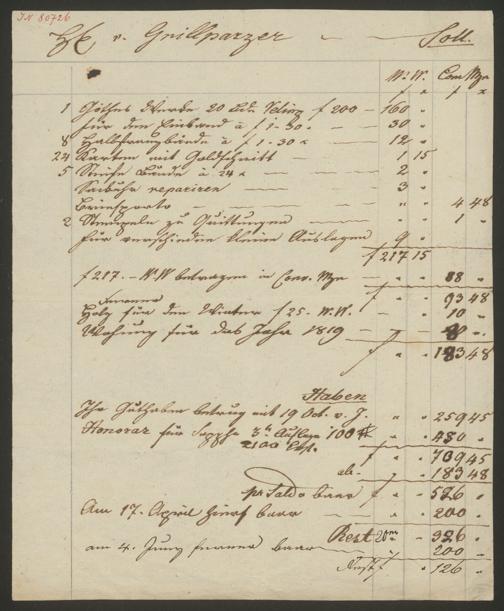 IN 80726
H v. Grillparzer — Soll.
W: W. Conv Mze
f x f x
1 Göthes Werke 20 Bde Velin f 200 — 160 "
für den Einband à f 1-30. — 30 "
8 Halbfranzbände à f 1-30 x — 12 "
24 Karten mit Goldschnitt — 1 15
5 Steife Bände à 24 x — 2 "
reparieren — 3 "
Briefporto — " " 4 48
2 Stempeln zu Quittungen — " " 1 "
für verschiedene kleine Auslagen 9 "
f 217 15
f 217.- W W betragen in Conv. Mze — 88 "
f " " 93 48
Ferner
Holz für den Winter f 25- W. W. — 10 "
Wohnung für das Jahr 1819 — 80 "
f " " 183 48
Haben
Ihr Guthaben betrug mit 19 Oct. v. J. " " 259 45
Honorar für Sappho 3te Auflage 100 # " " 450 "
f " " 709 45
ab- " " 183 48
pr Saldo baar f " " 526 "
Am 17. April baar — " " 200 "
Rest " 326 "
am 4. Juny ferner baar " 200 "
Rest f " 126 "